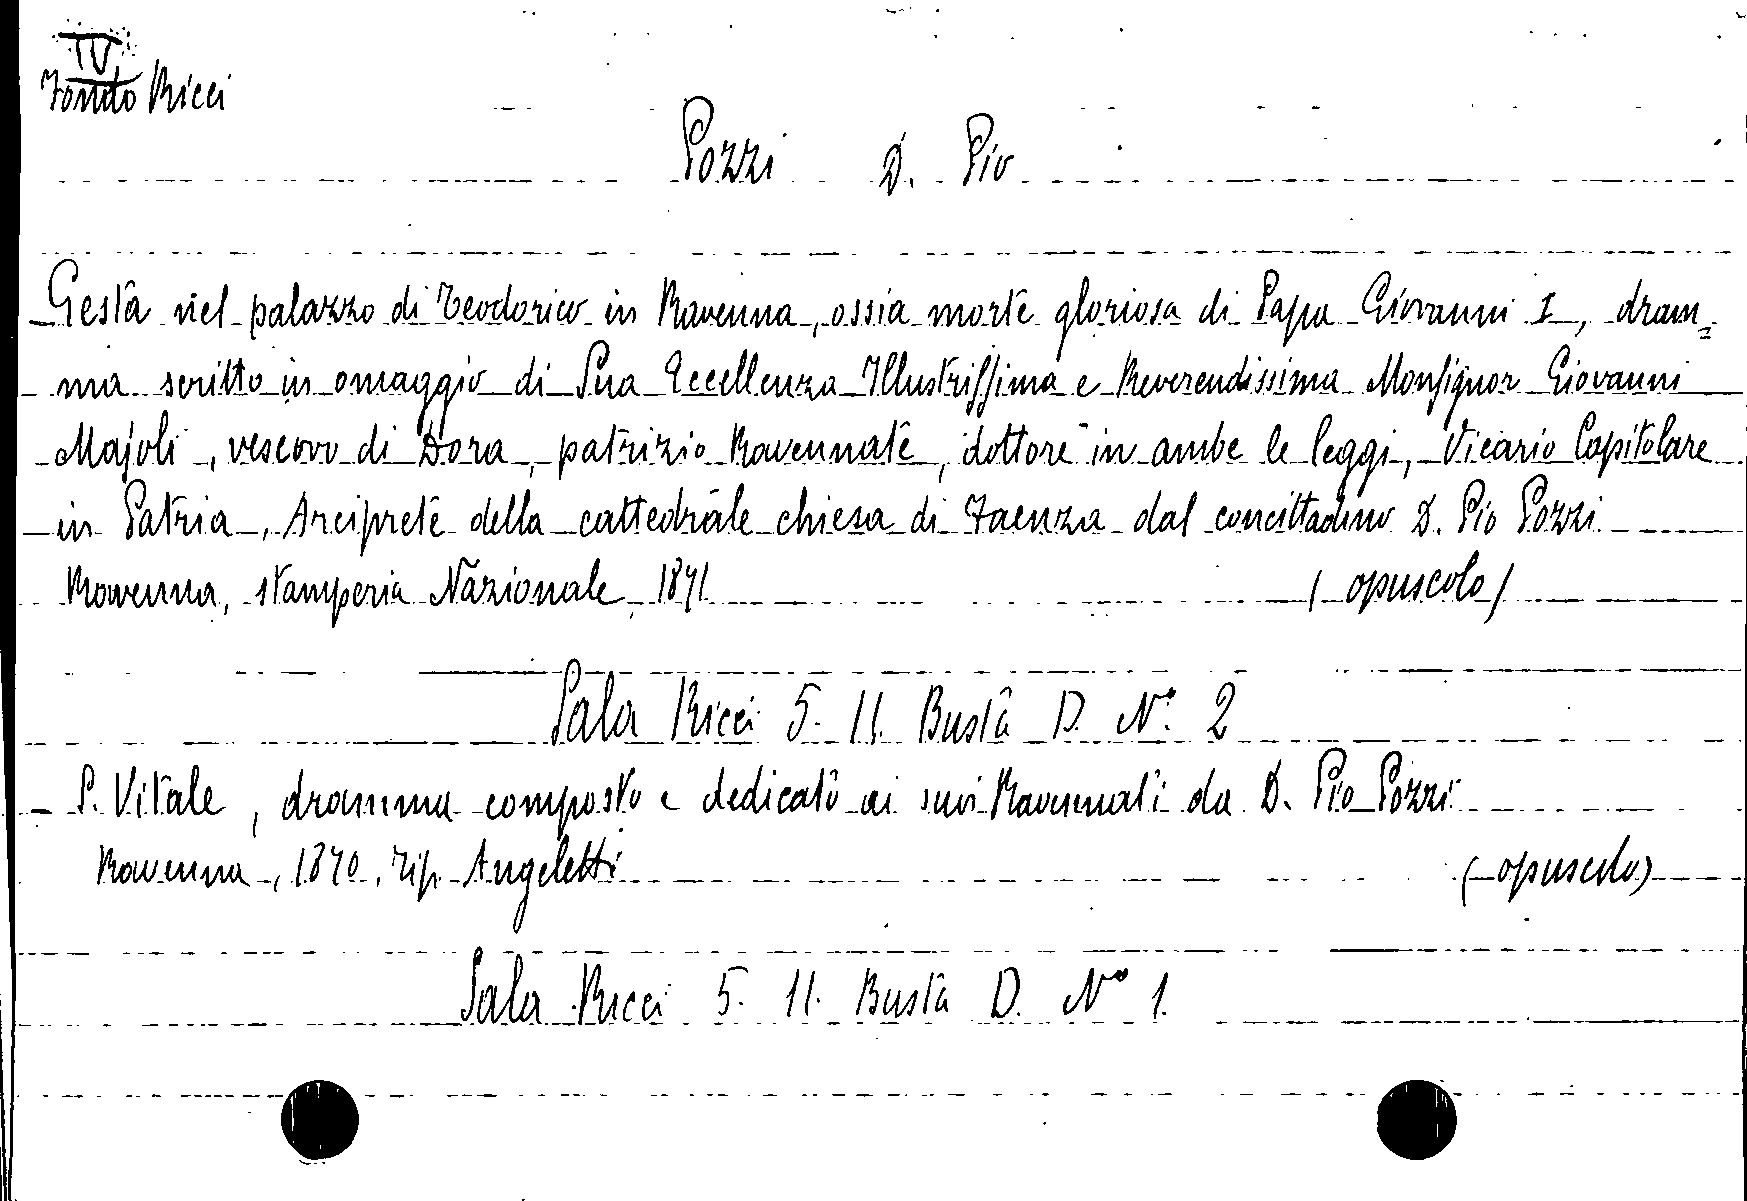 IV
Fondo Ricci
Pozzi D. Pio
Gesta nel palazzo di Teodorico in Ravenna, ossia morte gloriosa di Papa Giovanni I, dram=
ma scritto in omaggio di Sua Eccellenza Illustrissima e Reverendissima Monsignor Giovanni
Majoli, vescovo di Dora, patrizio Ravennate, dottore in ambe le leggi, Vicario Capitolare
in Patria, Arciprete della cattedrale chiesa di Faenza dal concittadino D. Pio Pozzi
Ravenna, stamperia Nazionale, 1871 (opuscolo)
Sala Ricci 5. 11. Busta D. N° 2
S. Vitale, dramma composto e dedicato ai suoi Ravennati da D. Pio Pozzi
Ravenna, 1870, Tip. Angeletti (opuscolo)
Sala Ricci 5. 11. Busta D. N° 1.